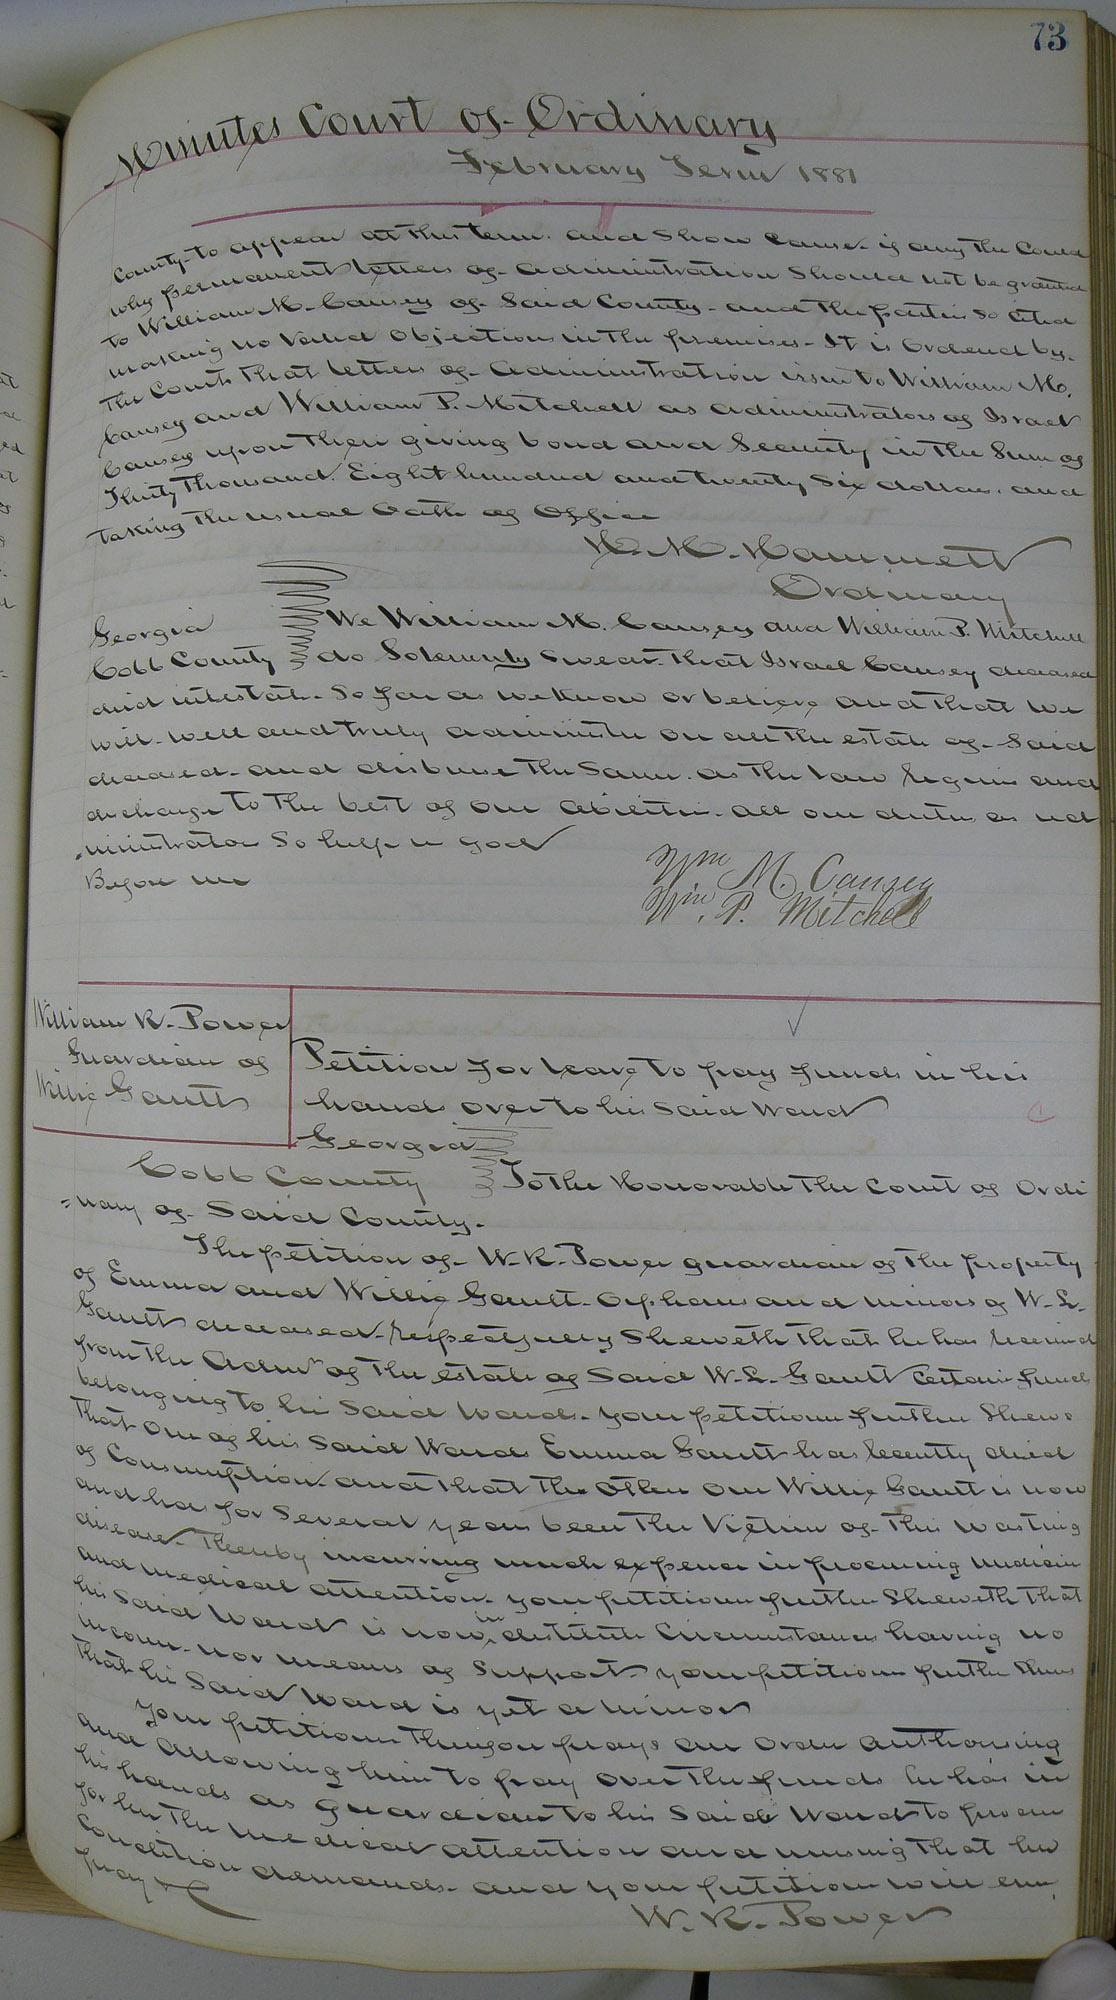 73
Minutes Court of Ordinary
February Term 1881
County to appear at this term and Show Cause if any the Could
why permanent letters of administration Should not be granted
to William M. Causey of Said County and the parties So Cited
making no Valid Objections in the premises It is Ordered by
the Court that letters of Administration issue to William M.
Causey and William P. Mitchell as administrators of Israel
Causey upon their giving bond and Security in the Sum of
Thirty Thousand Eight hundred and twenty Six dollars and
taking the usual Oath of Office
H. M. Hammett
Ordinary
Georgia
Cobb County
We William M. Causey and William P. Mitchell
do Solemnly Swear that Israel Causey deceased
died intestate So far as we Know or believe and that we
will well and truly administer on all the estate of Said
deceased and disburse the Same as the law requires and
discharge to the best of our abilities all our duties as ad
=ministrators So help us god
Before me
Wm M. Causey
Wm. P. Mitchell
William R. Power
Guardian of
Willie Gantt
Petition for leave to pay funds in his
hands over to his Said Ward
Georgia
Cobb County
To the Honorable the Court of Ordi
=nary of Said County.
The petition of W. R. Power guardian of the property
of Emma and Willie Gantt Orphans and minors of W. L.
Gantt deceased respectfully Sheweth that he has received
from the Admr of the estate of Said W. L. Gantt Certain funds
belonging to his Said Wards. your petitioner further Shews
that One of his Said Wards Emma Gantt has lately died
of Consumption and that the Other One Willie Gantt is now
and has for Several years been the Victim of this wasting
disease thereby incurring much expense in procuring medicine
and medical attention your petitioner further Sheweth that
his Said Ward is now in destitute Circumstances having no
income nor means of Support your petitioner further Shews
that his Said Ward is yet a minor
your petitioner therefore prays an Order authorising
and allowing him to pay over the funds he has in
his hands as guardian to his Said Ward to procure
for her the medical attention and nursing that her
Condition demands and your petitioner will ever
pray &c
W. R. Power